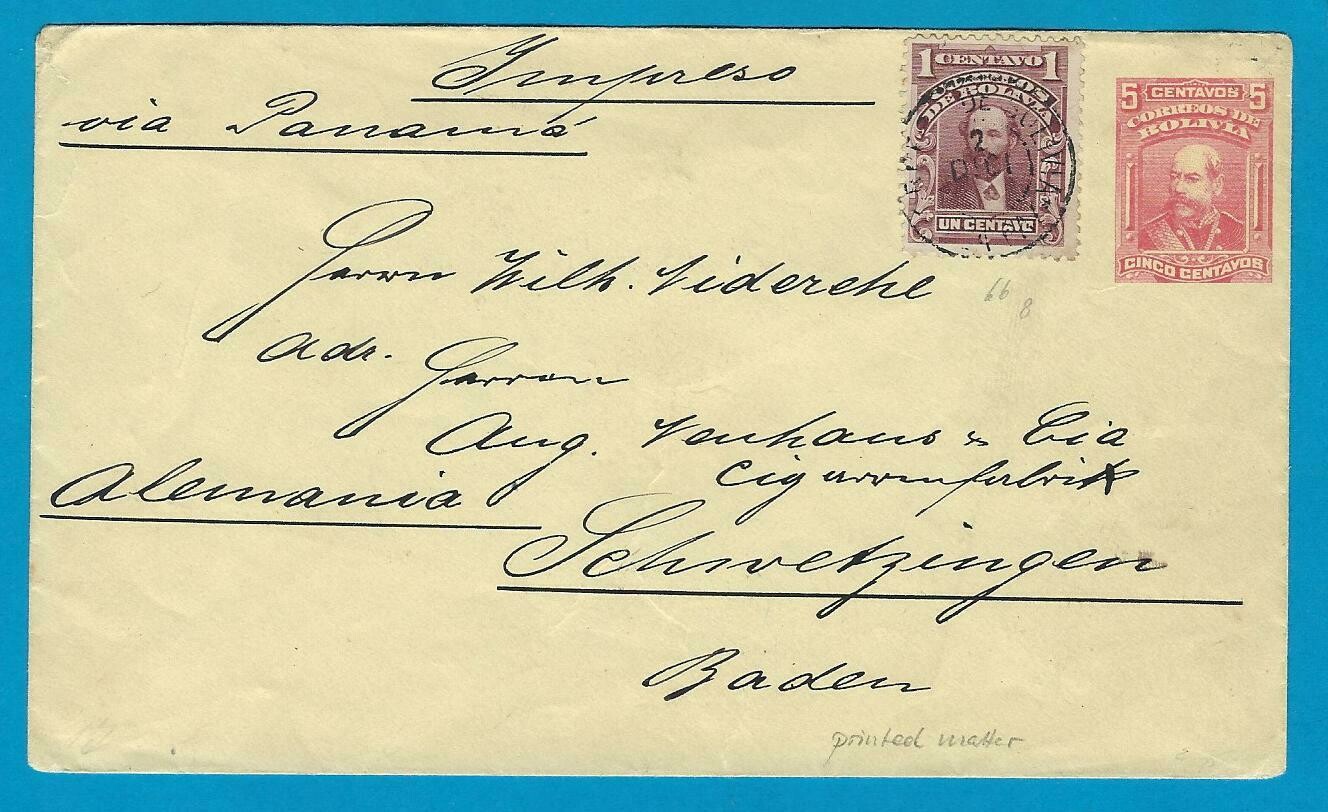 Impreso
via Panamá
1 CENTAVO 1
DE BOLIVIA
2
DIC
UN CENTAVO
5 CENTAVOS 5
CORREOS DE
BOLIVIA
CINCO CENTAVOS
Herrn Wilh. Niderehe
66
8
adr. Herrn
Aug. Neuhaus & Cia
Cigarrenfabrik
Alemania
Schwetzingen
Baden
printed matter